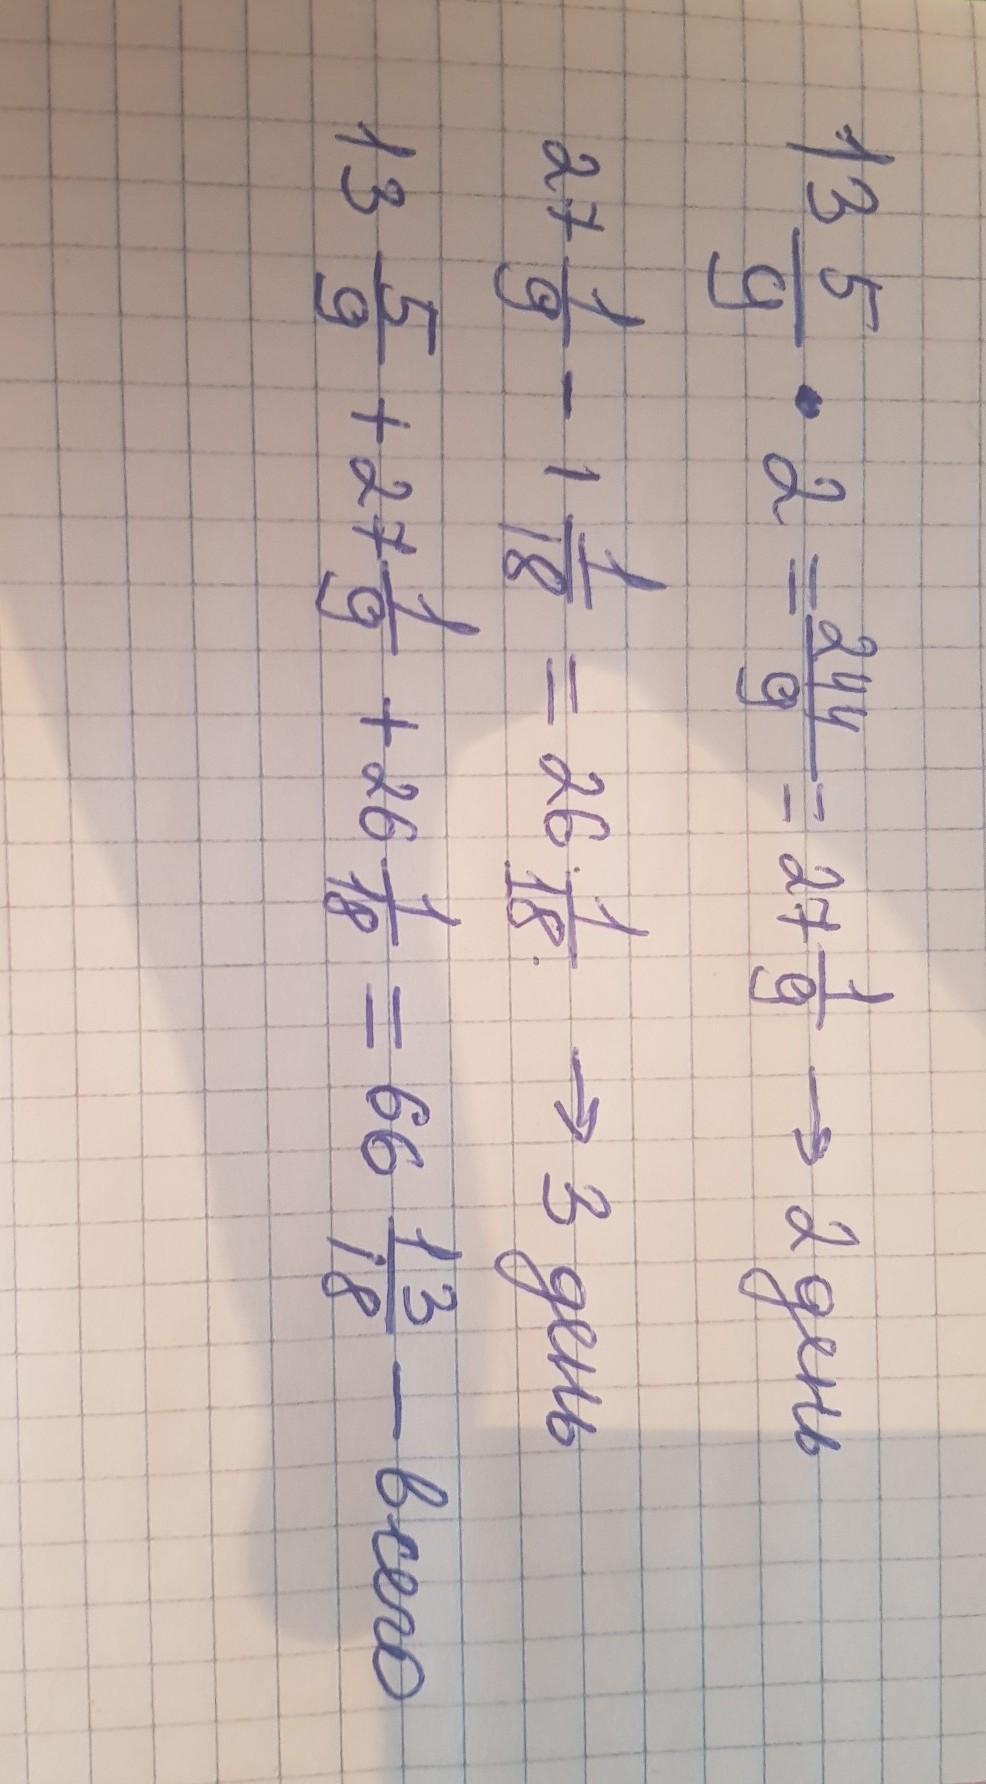 13 5/9 • 2 = 244/9 = 27 1/9 → 2 день
27 1/9 - 1 1/18 = 26 1/18. → 3 день
13 5/9 + 27 1/9 + 26 1/18 = 66 13/18 — всего